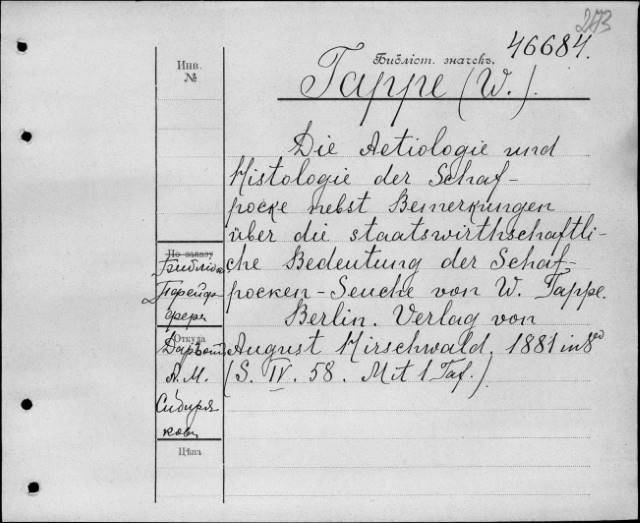 2473
46684.
Инв.
№
Библіот. значекъ.
Tappe (W.).
Die Aetiologie und
Histologie der Schaf-
pocke nebst Bemerkungen
über die staatswirthschaftli-
che Bedeutung der Schaf-
pocken-Seuche von W. Tappe.
Berlin. Verlag von
August Hirschwald. 1881 in 8°
(S. IV. 58. Mit 1 Taf.)
По заказу
Откуда
Даръ
А. М.
Сибиря
кова
Цѣна